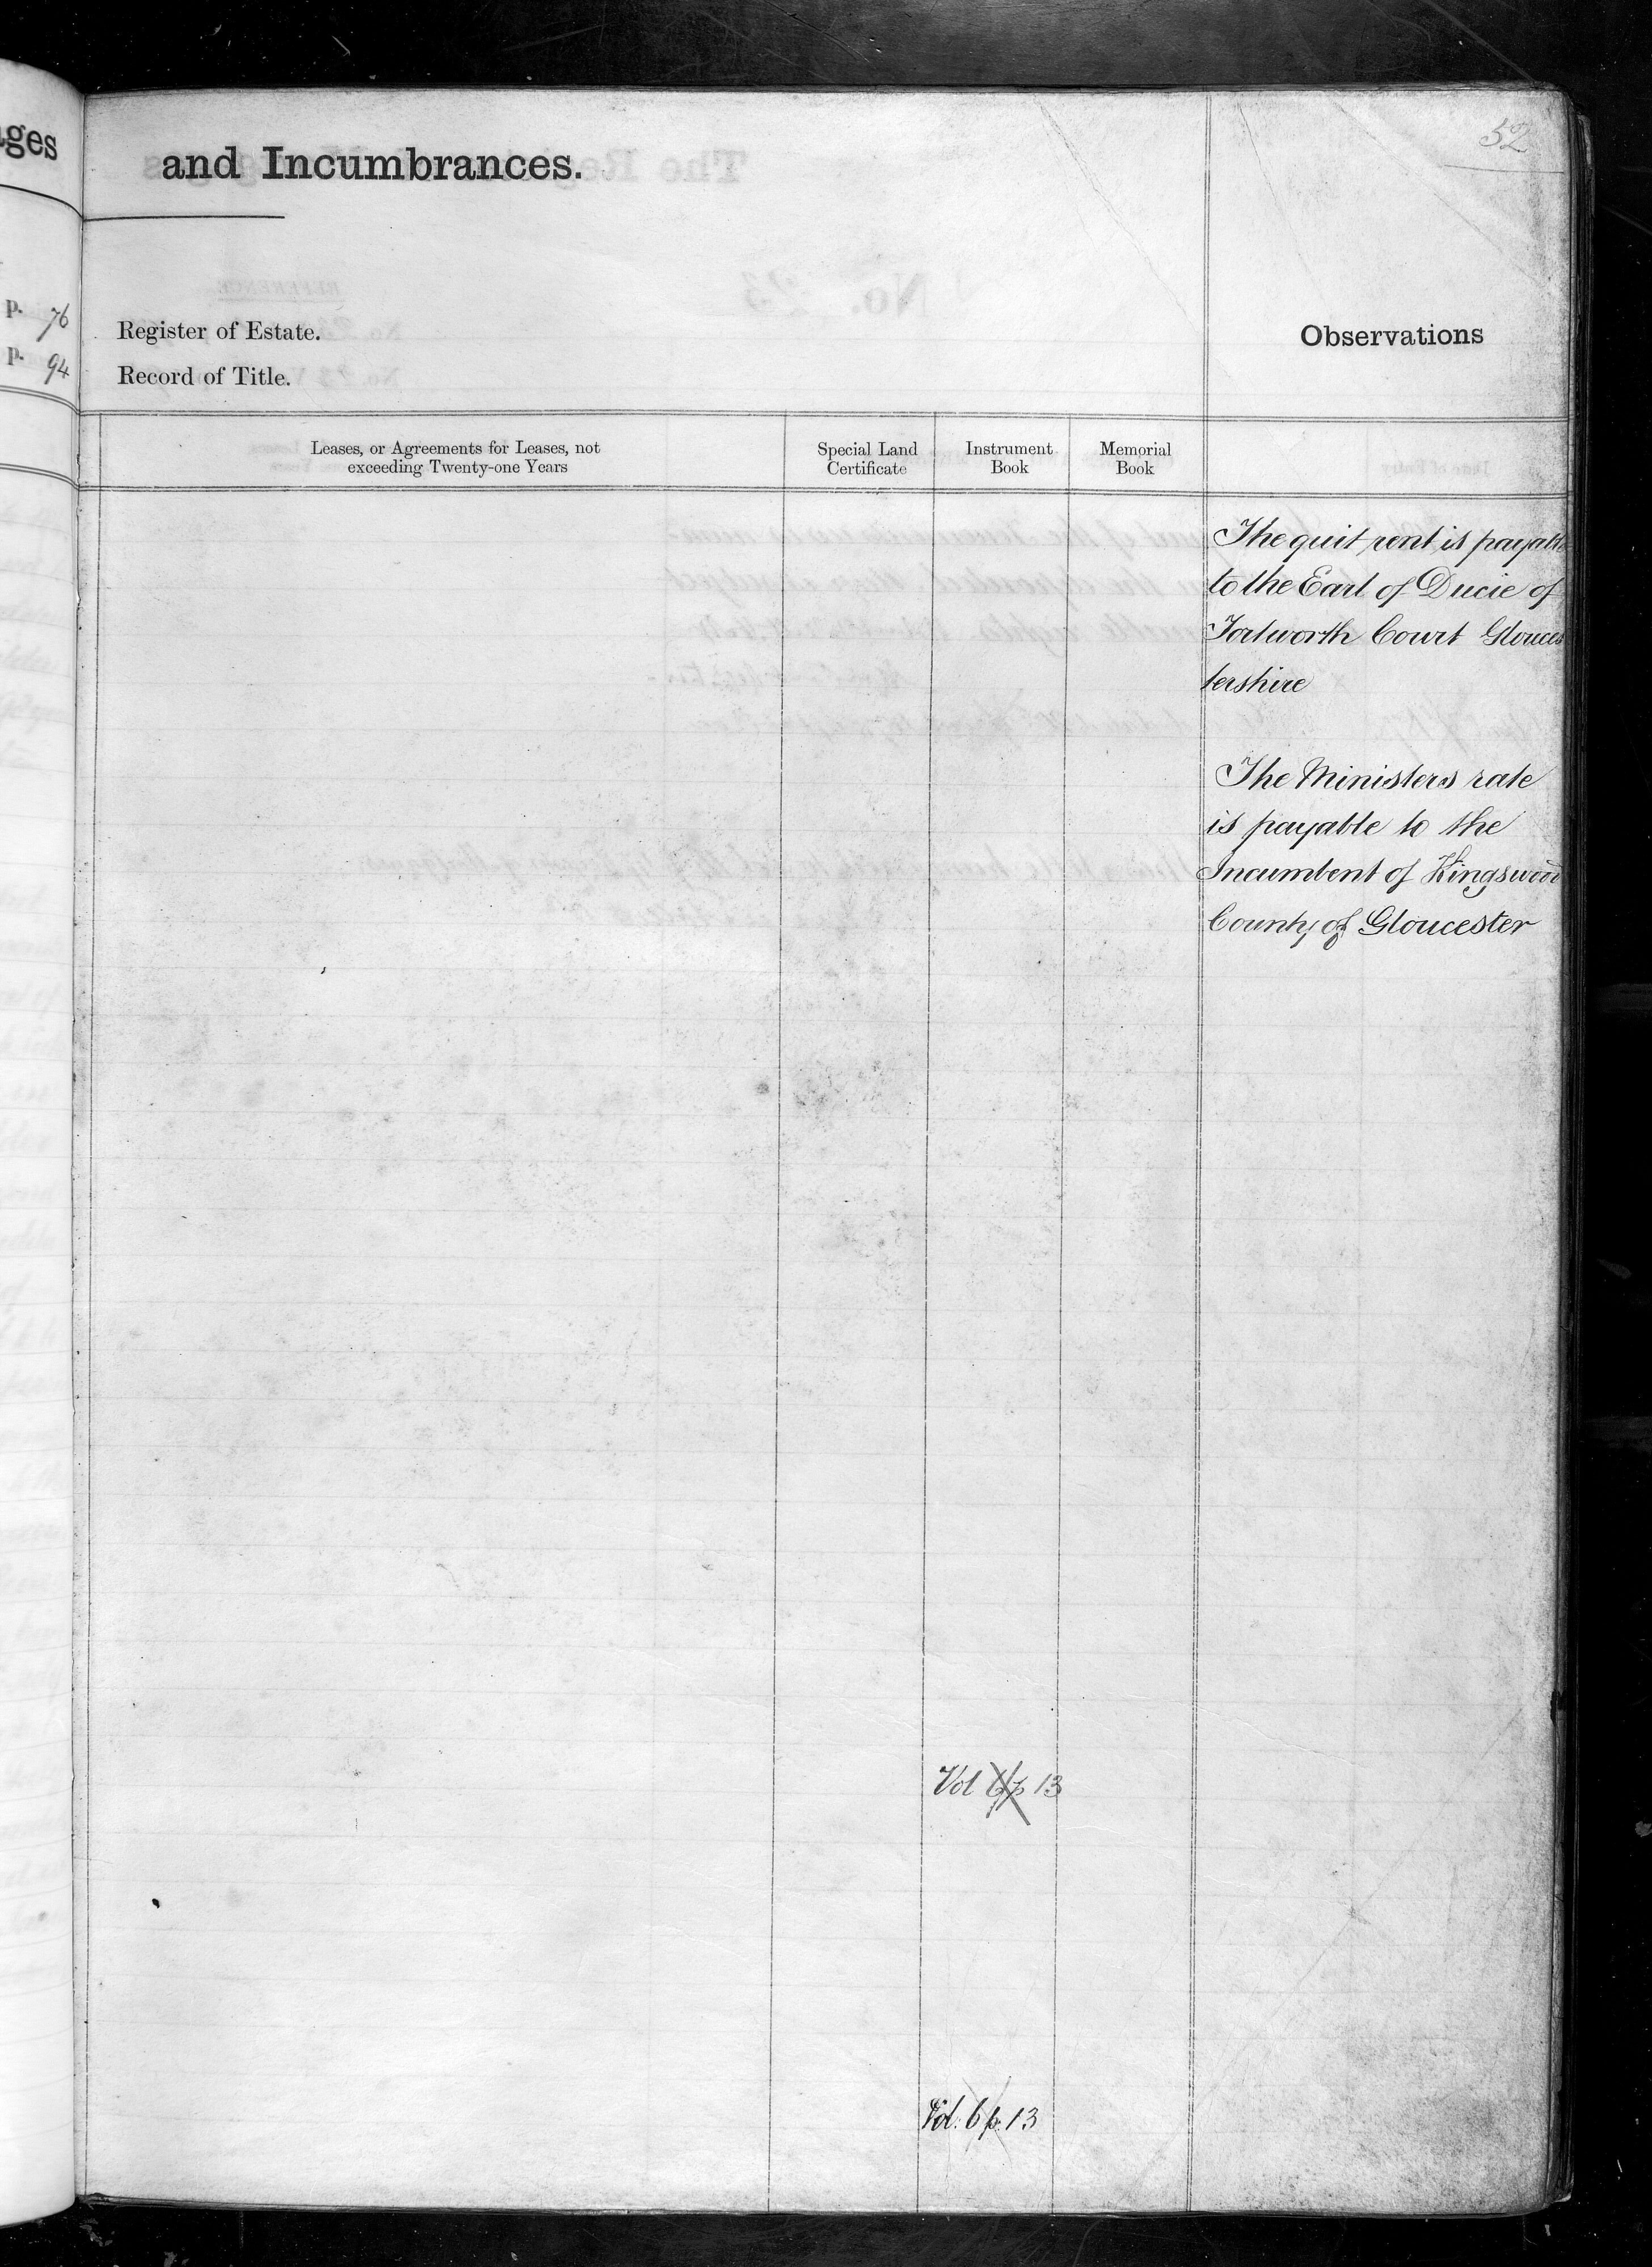 52
ages
and Incumbrances.
p. 76
p. 94
Register of Estate.
Record of Title.
Observations
Leases, or Agreements for Leases, not
exceeding Twenty-one Years
Special Land
Certificate
Instrument
Book
Memorial
Book
The quit rent is payable
to the Earl of Ducie of
Tortworth Court Glouces
tershire
The Ministers rate
is payable to the
Incumbent of Kingswood
County of Gloucester
Vol 6 p 13
Vol: 6 p. 13